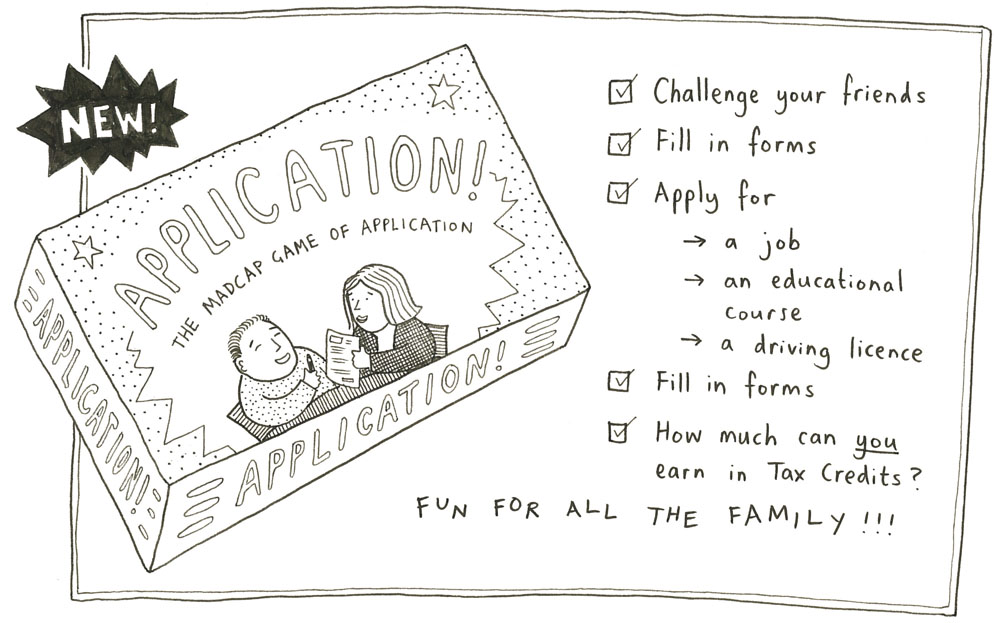 NEW!
APPLICATION!
THE MADCAP GAME OF APPLICATION
APPLICATION!
APPLICATION!
Challenge your friends
Fill in forms
Apply for
→ a job
→ an educational
course
→ a driving licence
Fill in forms
How much can you
earn in Tax Credits?
FUN FOR ALL THE FAMILY!!!